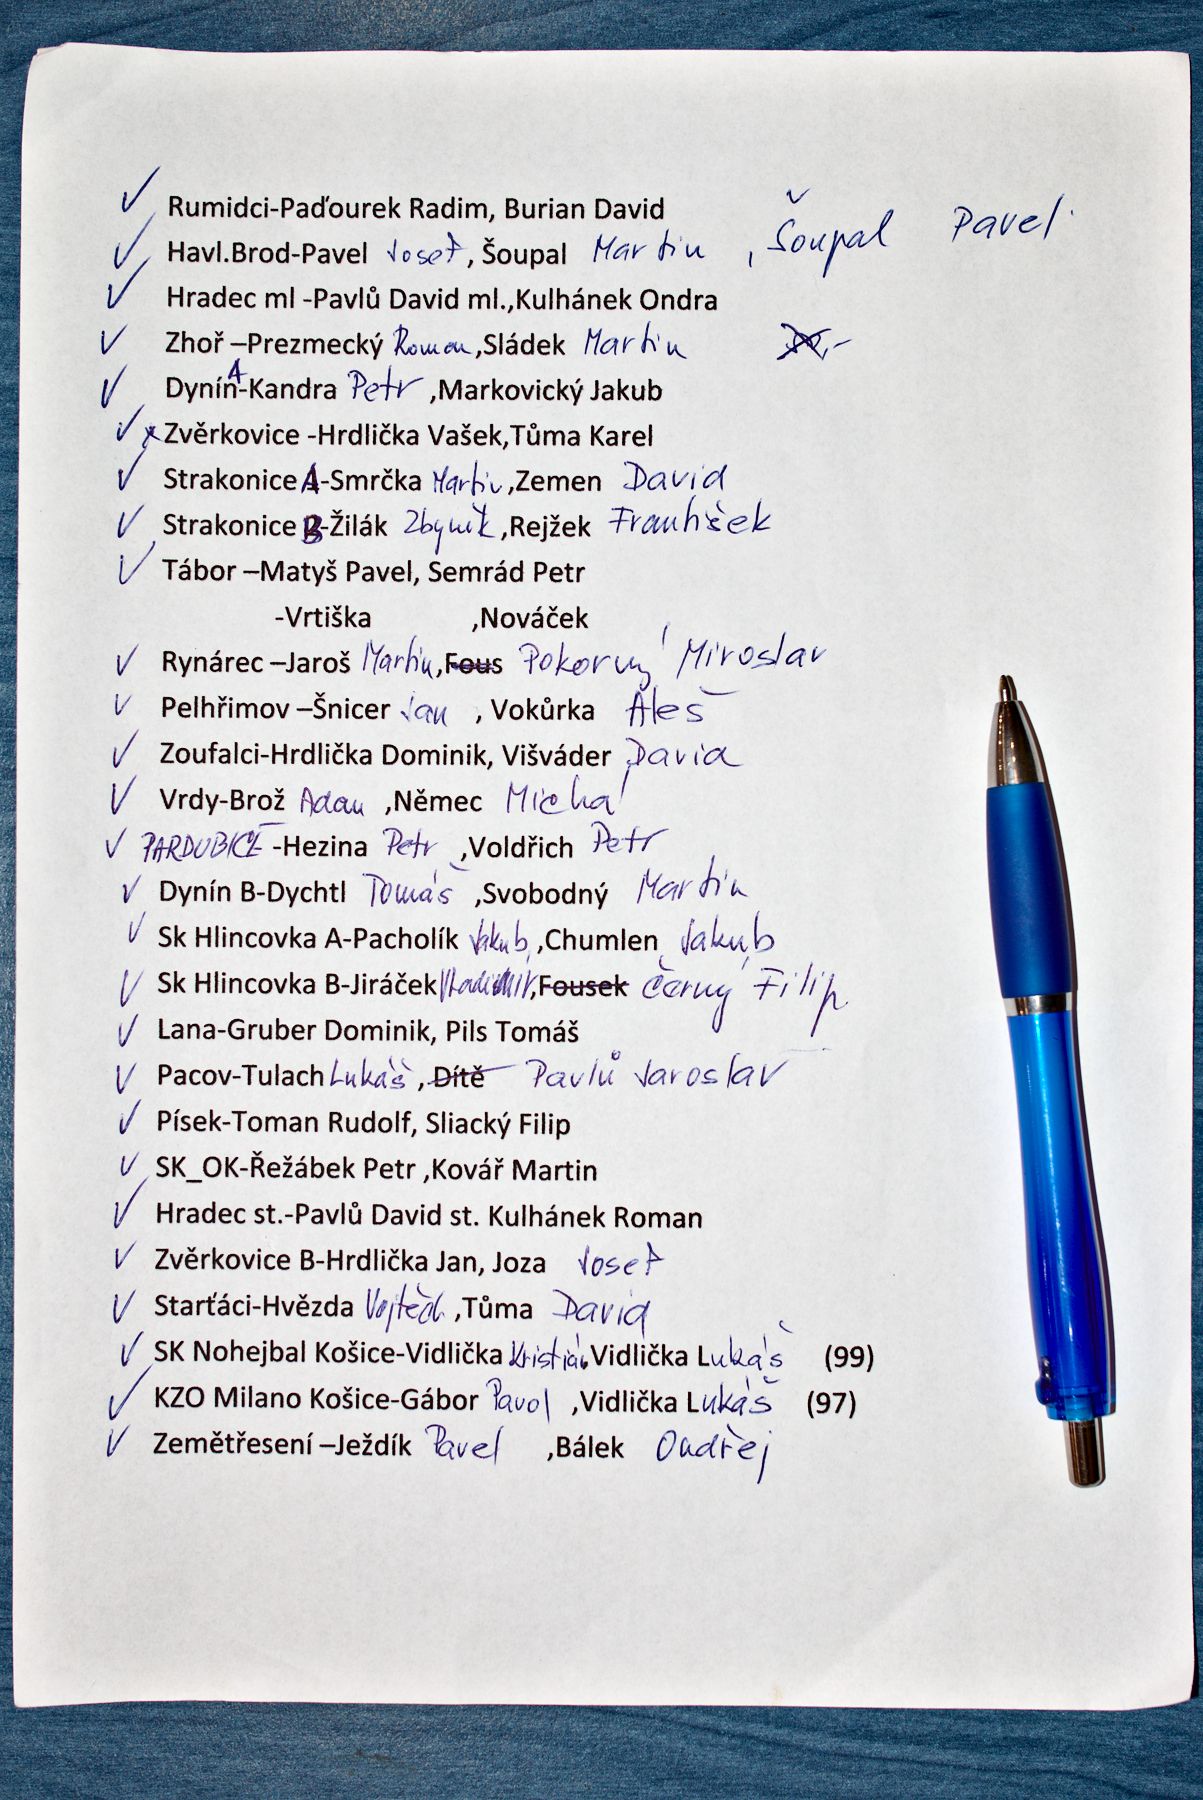 ✓ Rumidci-Paďourek Radim, Burian David
✓ Havl.Brod-Pavel Josef, Šoupal Martin , Šoupal Pavel
✓ Hradec ml -Pavlů David ml.,Kulhánek Ondra
✓ Zhoř –Prezmecký Roman,Sládek Martin
✓ Dynín A-Kandra Petr ,Markovický Jakub
✓ x Zvěrkovice -Hrdlička Vašek,Tůma Karel
✓ Strakonice A-Smrčka Martin,Zemen David
✓ Strakonice B-Žilák Zbyněk,Rejžek František
✓ Tábor –Matyš Pavel, Semrád Petr
-Vrtiška ,Nováček
✓ Rynárec –Jaroš Martin,Fous Pokorný Miroslav
✓ Pelhřimov –Šnicer Jan , Vokůrka Aleš
✓ Zoufalci-Hrdlička Dominik, Višváder David
✓ Vrdy-Brož Adam ,Němec Michal
✓ PARDUBICE -Hezina Petr ,Voldřich Petr
✓ Dynín B-Dychtl Tomáš ,Svobodný Martin
✓ Sk Hlincovka A-Pacholík Jakub,Chumlen Jakub
✓ Sk Hlincovka B-Jiráček Vladimír,Fousek Černý Filip
✓ Lana-Gruber Dominik, Pils Tomáš
✓ Pacov-Tulach Lukáš , Dítě Pavlů Jaroslav
✓ Písek-Toman Rudolf, Sliacký Filip
✓ SK_OK-Řežábek Petr ,Kovář Martin
✓ Hradec st.-Pavlů David st. Kulhánek Roman
✓ Zvěrkovice B-Hrdlička Jan, Joza Josef
✓ Starťáci-Hvězda Vojtěch ,Tůma David
✓ SK Nohejbal Košice-Vidlička Kristián,Vidlička Lukáš (99)
✓ KZO Milano Košice-Gábor Pavol ,Vidlička Lukáš (97)
✓ Zemětřesení –Ježdík Pavel ,Bálek Ondřej